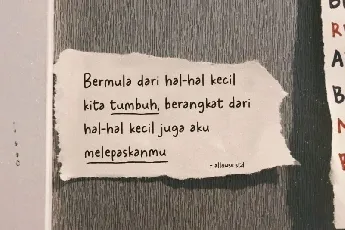 Bermula dari hal-hal kecil
kita tumbuh, berangkat dari
hal-hal kecil juga aku
melepaskanmu